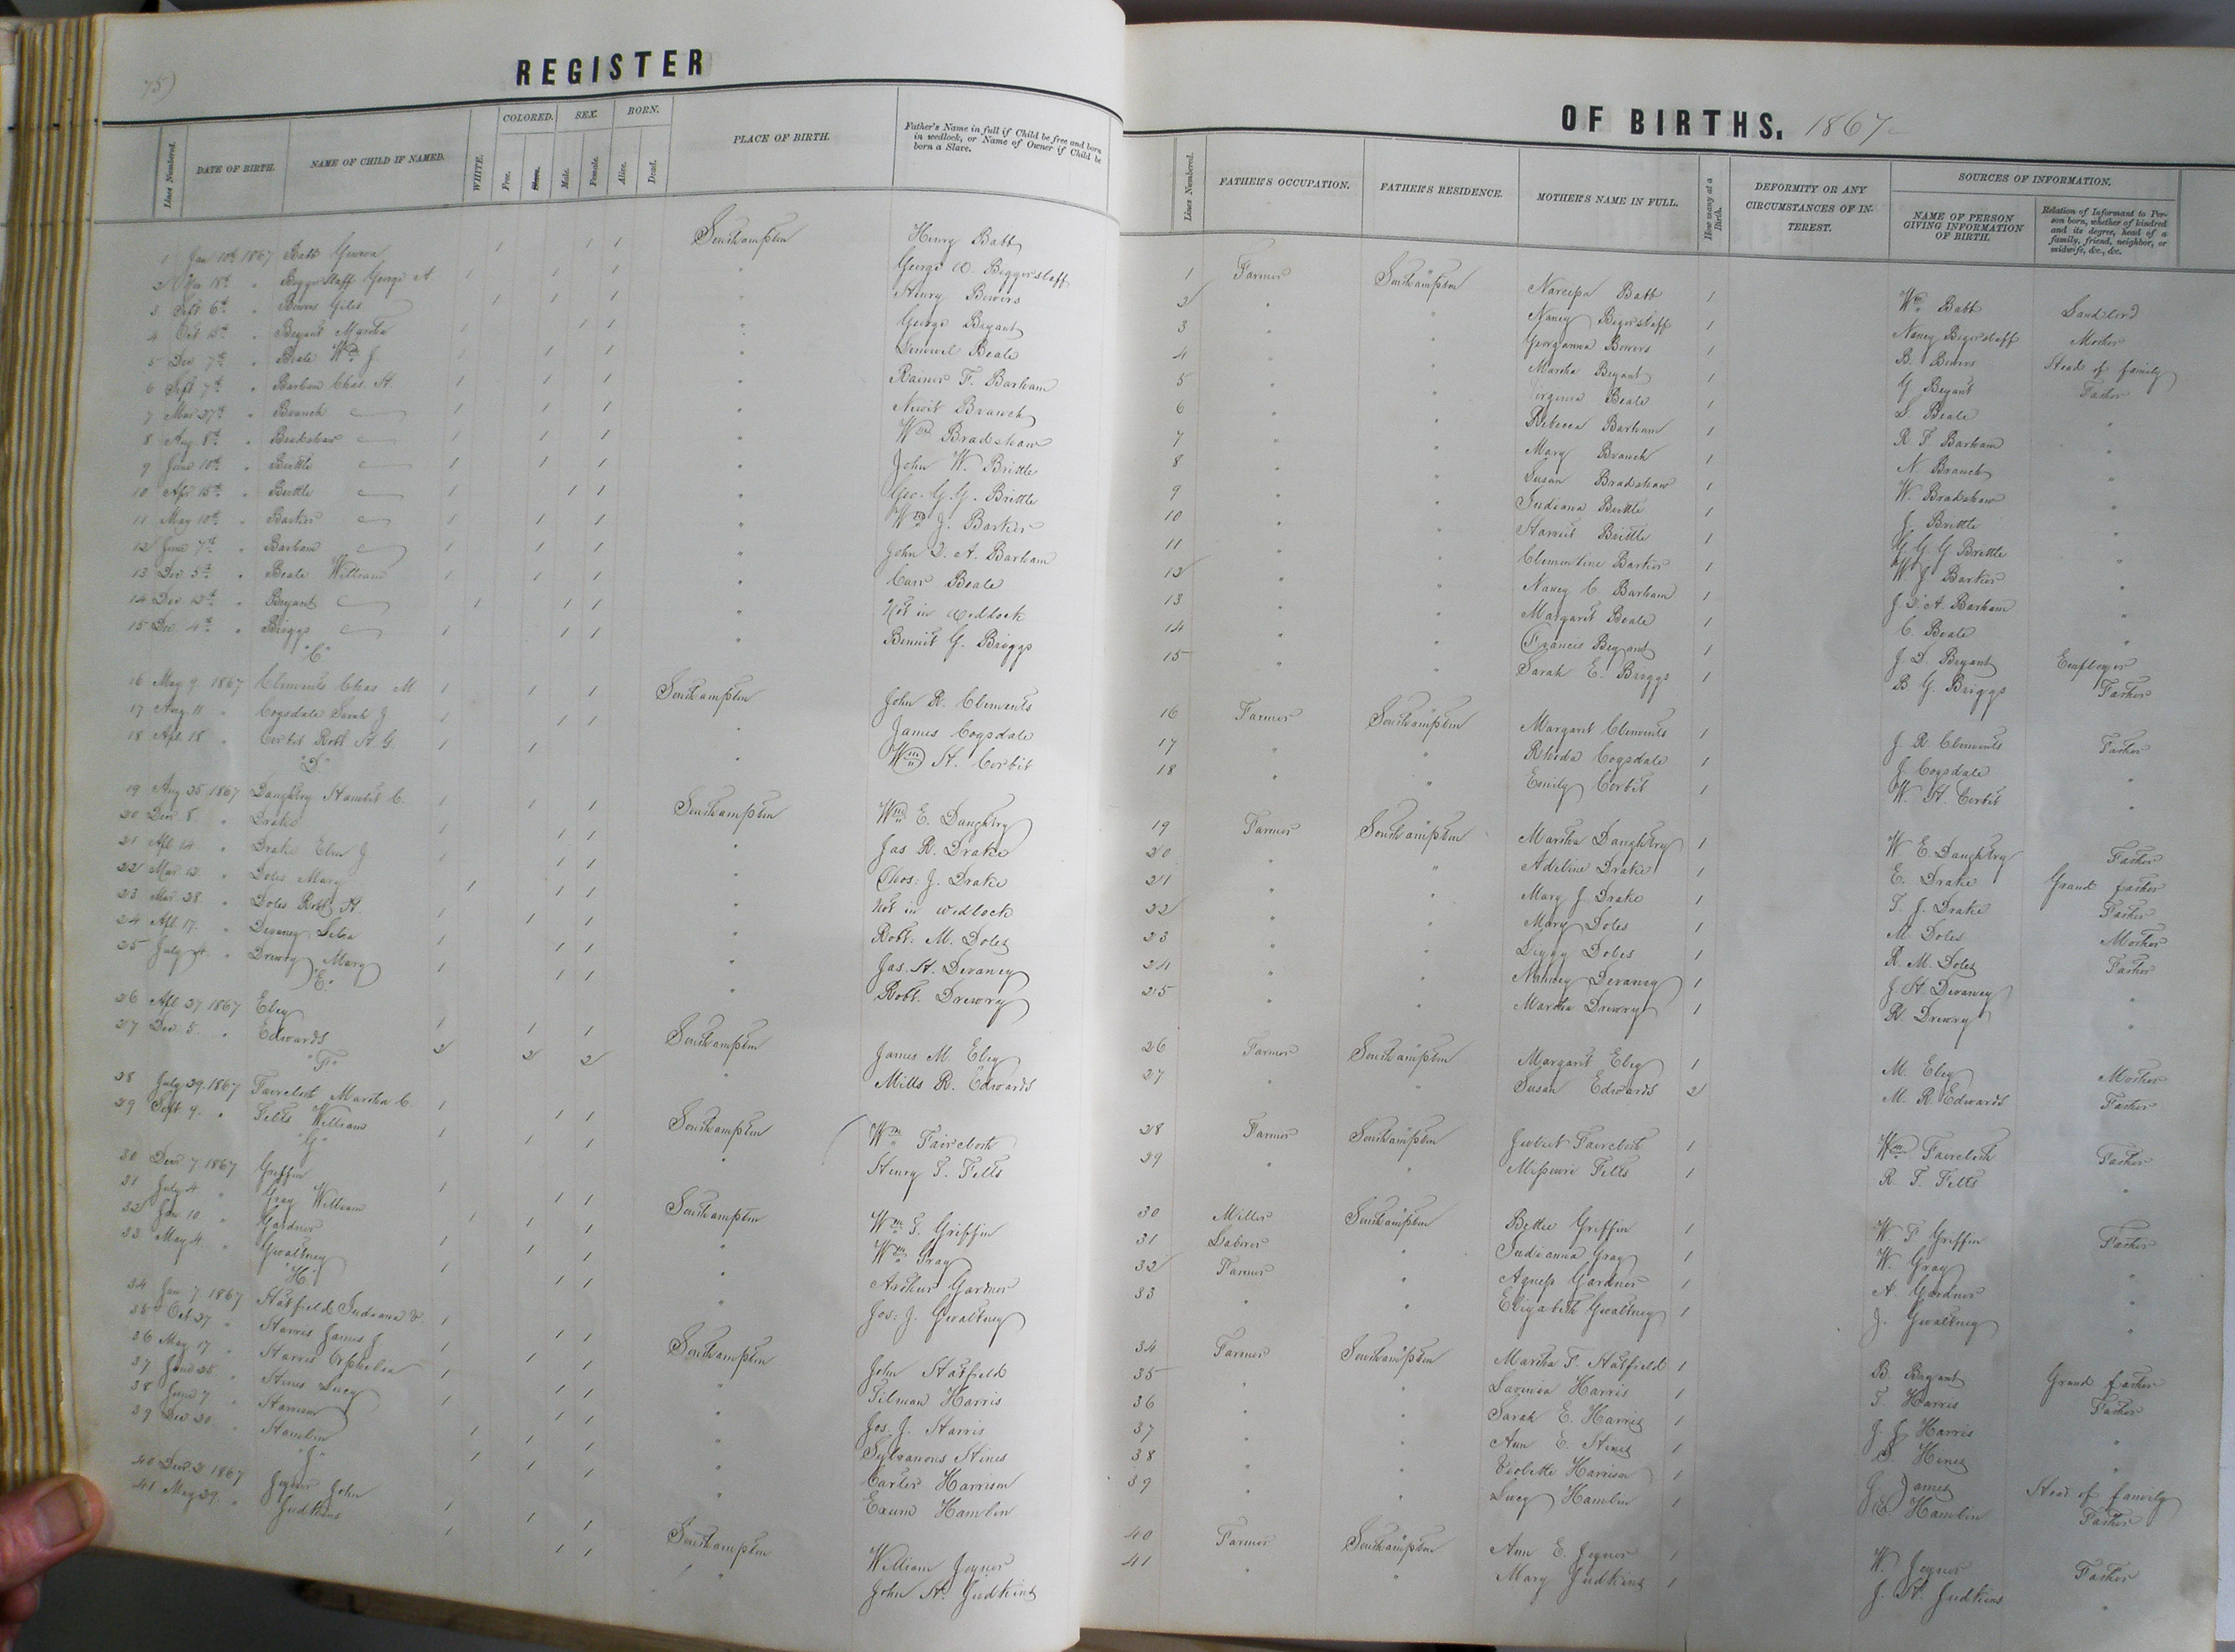 75)
REGISTER
Lines Numbered. DATE OF BIRTH. NAME OF CHILD IF NAMED. WHITE. COLORED. Free. Slave. SEX. Male. Female. BORN. Alive. Dead. PLACE OF BIRTH. Father's Name in full if Child be free and born in wedlock, or Name of Owner if Child be born a Slave.
1 Jan 10th 1867 Babb 1 1 1 Southampton Henry Babb
2 18th " Beggerstaff George A 1 1 1 " George W. Beggerstaff
3 Sept 6th " Bowers Giles 1 1 1 " Henry Bowers
4 Oct " Bryant Martha 1 1 1 " George Bryant
5 Dec 7th " Beale Wm J. 1 1 1 " Lemuel Beale
6 Sept 7th " Barham Chas. H. 1 1 1 " Rainer F. Barham
7 Mar 27th " Branch 1 1 1 " Newit Branch
8 Aug 8th " Bradshaw 1 1 1 " Wm Bradshaw
9 June 10th " Brittle 1 1 1 " John W. Brittle
10 Apr 15th " Brittle 1 1 1 " Geo. G. G. Brittle
11 May 10th " Barker 1 1 1 " Wm J. Barker
12 June 7th " Barham 1 1 1 " John D. A. Barham
13 Dec 5th " Beale William 1 1 1 " Carr Beale
14 Dec 12th " Bryant 1 1 1 " Not in wedlock
15 Dec 4th " Briggs 1 1 1 " Bennit G. Briggs
"C"
16 May 9 1867 Clements Chas M. 1 1 1 Southampton John R. Clements
17 Aug 11 " Cogsdale Sarah J 1 1 1 " James Cogsdale
18 Apl. 18 " Corbit Robt H. G. 1 1 " Wm H. Corbit
"D"
19 Aug 25 1867 Daughtry C. 1 1 1 Southampton Wm E. Daughtry
20 Dec 8 " Drake 1 1 1 " Jas R. Drake
21 Apl 14 " Drake J. 1 1 1 " Thos: J. Drake
22 Mar. 12 " Doles Mary 1 1 1 " Not in wedlock
23 Mar. 28 " Doles Robt H. 1 1 1 " Robt. M. Doles
24 Apl. 17. " Devaney 1 1 1 " Jas. H. Devaney
25 July 4 " Drewry Mary 1 1 1 " Robt. Drewry
"E"
26 Apl 27 1867 Eley 1 1 1 Southampton James M. Eley
27 Dec. 5. " Edwards 2 2 2 " Mills R. Edwards
"F"
28 July 29. 1867 Faircloth Martha C. 1 1 1 Southampton Wm Faircloth
29 Sept 9. " Felts William 1 1 1 " Henry T. Felts
"G"
30 Dec. 7 1867 Griffin 1 1 1 Southampton Wm T. Griffin
31 July 4 " Gray William 1 1 1 " Wm Gray
32 Jan 10 " Gardner 1 1 1 " Arthur Gardner
33 May 4 " Gwaltney 1 1 1 " Jos. J. Gwaltney
"H"
34 Jan 7. 1867 Hatfield Indiana V. 1 1 1 Southampton John Hatfield
35 Oct 27 " Harris James J 1 1 1 " Tilman Harris
36 May 17 " Harris Orphelia 1 1 1 " Jos. J. Harris
37 June 25 " Hines Lucy 1 1 1 " Sylvanous Hines
38 June 7 " Harrison 1 1 1 " Carter Harrison
39 Dec 20 " Hamlin 1 1 1 " Exum Hamlin
"J"
40 Dec 2 1867 Joyner John 1 1 1 Southampton William Joyner
41 May 29. " Judkins 1 1 1 " John H. Judkins
OF BIRTHS. 1867
Lines Numbered. FATHER'S OCCUPATION. FATHER'S RESIDENCE. MOTHER'S NAME IN FULL. How many at a Birth. DEFORMITY OR ANY CIRCUMSTANCES OF INTEREST. SOURCES OF INFORMATION. NAME OF PERSON GIVING INFORMATION OF BIRTH. Relation of Informant to Person born, whether of kindred and its degree, head of a family, friend, neighbor, or midwife, &c., &c.
1 Farmer Southampton Narcissa Babb 1 Wm Babb Landlord
2 " " Nancy Begerstaff 1 Nancy Begerstaff Mother
3 " " Georganna Bowers 1 B. Bowers Head of family
4 " " Martha Bryant 1 G Bryant Father
5 " " Virginia Beale 1 L Beale "
6 " " Rebecca Barham 1 R F. Barham "
7 " " Mary Branch 1 N. Branch "
8 " " Susan Bradshaw 1 W. Bradshaw "
9 " " Indiana Brittle 1 J. Brittle "
10 " " Harriet Brittle 1 G G G Brittle "
11 " " Clementine Barker 1 W J Barker "
12 " " Nancy C. Barham 1 J. D. A. Barham "
13 " " Margaret Beale 1 C. Beale "
14 " " Francis Bryant 1 J. D. Bryant Employer
15 " " Sarah E. Briggs 1 B G. Briggs Father
16 Farmer Southampton Margaret Clements 1 J. R Clements Father
17 " " Rhoda Cogsdale 1 J. Cogsdale "
18 " " Emily Corbit 1 W. H. Corbit "
19 Farmer Southampton Martha Daughtry 1 W E. Daughtry Father
20 " " Adeline Drake 1 E. Drake Grand father
21 " " Mary J. Drake 1 T. J. Drake Father
22 " " Mary Doles 1 M Doles Mother
23 " " Doles 1 R. M. Doles Father
24 " " Devaney 1 J H. Devaney "
25 " " Martha Drewry 1 R. Drewry "
26 Farmer Southampton Margaret Eley 1 M. Eley Mother
27 " " Susan Edwards 2 M. R. Edwards Father
28 Farmer Southampton Juliet Faircloth 1 Wm Faircloth Father
29 " " Missouri Felts 1 R. T. Felts "
30 Miller Southampton Bettie Griffin 1 W. T. Griffin Father
31 Laborer " Indianna Gray 1 W. Gray "
32 Farmer " Agness Gardner 1 A. Gardner "
33 " " Elizabeth Gwaltney 1 J. Gwaltney "
34 Farmer Southampton Martha F. Hatfield 1 B. Bryant Grand father
35 " " Lavinia Harris 1 T. Harris Father
36 " " Sarah E. Harris 1 J. J Harris "
37 " " Ann E. Hines 1 S. Hines "
38 " " Violette Harrison 1 G James Head of family
39 " " Lucy Hamlin 1 E Hamlin Father
40 Farmer Southampton Ann E. Joyner 1 W. Joyner Father
41 " " Mary Judkins 1 J. H. Judkins "